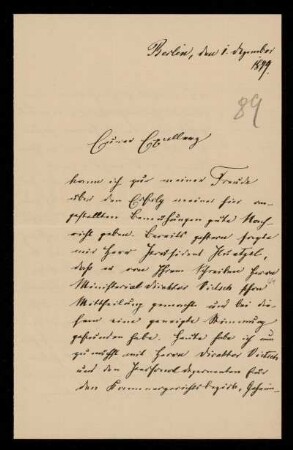 Berlin, den 1. Dezember
1899.
89
Eurer Excellenz
kann ich zu meiner Freude
über den Erfolg meiner hier an-
gestellten Bemühungen gute Nach-
richt geben. Bereits gestern sagte
mir Herr Präsident
daß er von Ihrem Schreiben Herrn
Ministerial Direktor
Mittheilung gemacht und bei die-
sem eine geneigte Stimmung
gefunden habe. Heute habe ich
mit Herrn Direktor
und den Personal dezernenten für
den Kammergerichtsbezirk, Geheim-